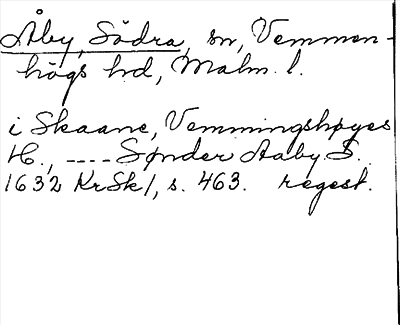 Åby, Södra, sn, Vemmen-
högs hd, Malm. l.
i Skaane, Vemmingshøyes
H., ---- Sønder Aaby S.
1632 KrSk1, s. 463. regest.